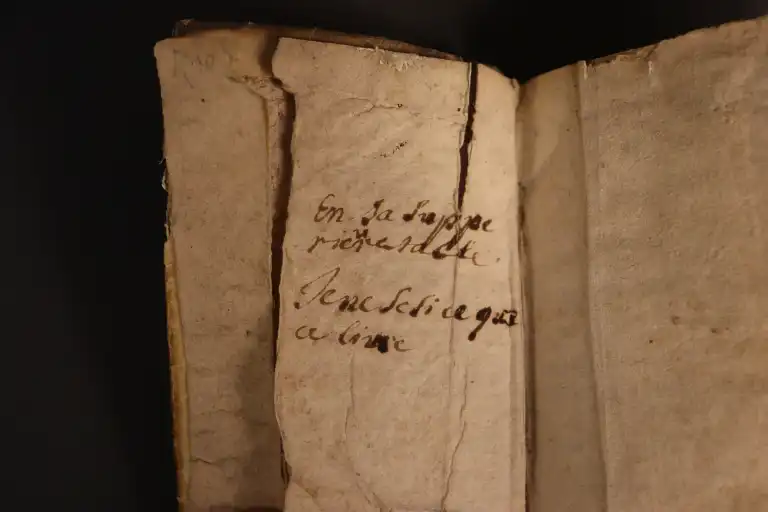 En Sa Suppe
rieure
Jene Se Si ce que
ce livre